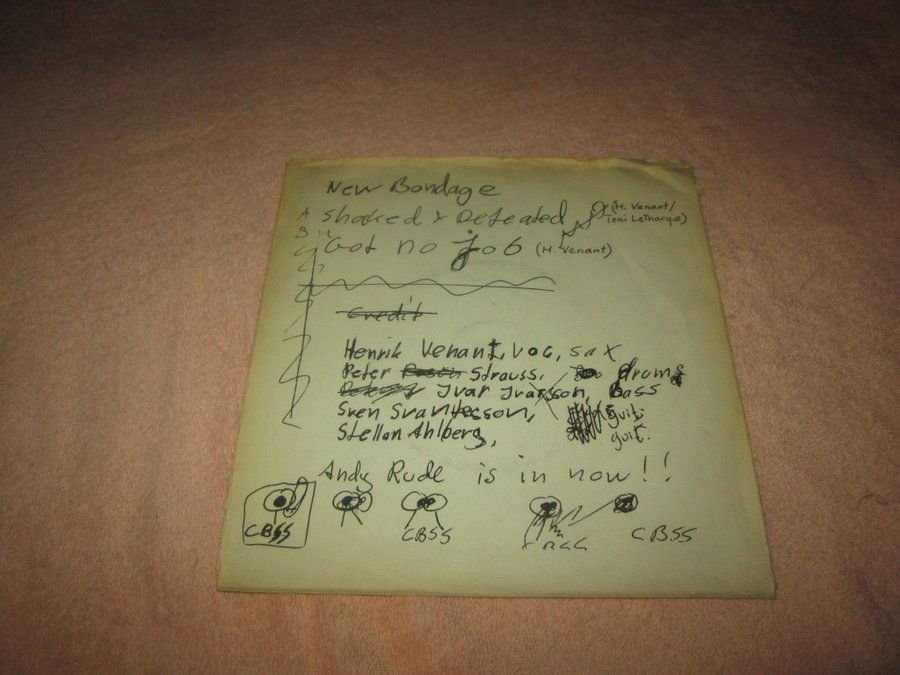 New Bondage
A Shaked & Defeated (H. Venant/
Toni Lethargie)
B Got no job (H. Venant)
Credit
Henrik Venant, voc, sax
Peter Strauss, drums
Ivar Ivarsson, Bass
Sven Svantesson, guit.
Stellan Ahlberg, guit.
Andy Rude is in now!!
CBSS CBSS CBSS CBSS